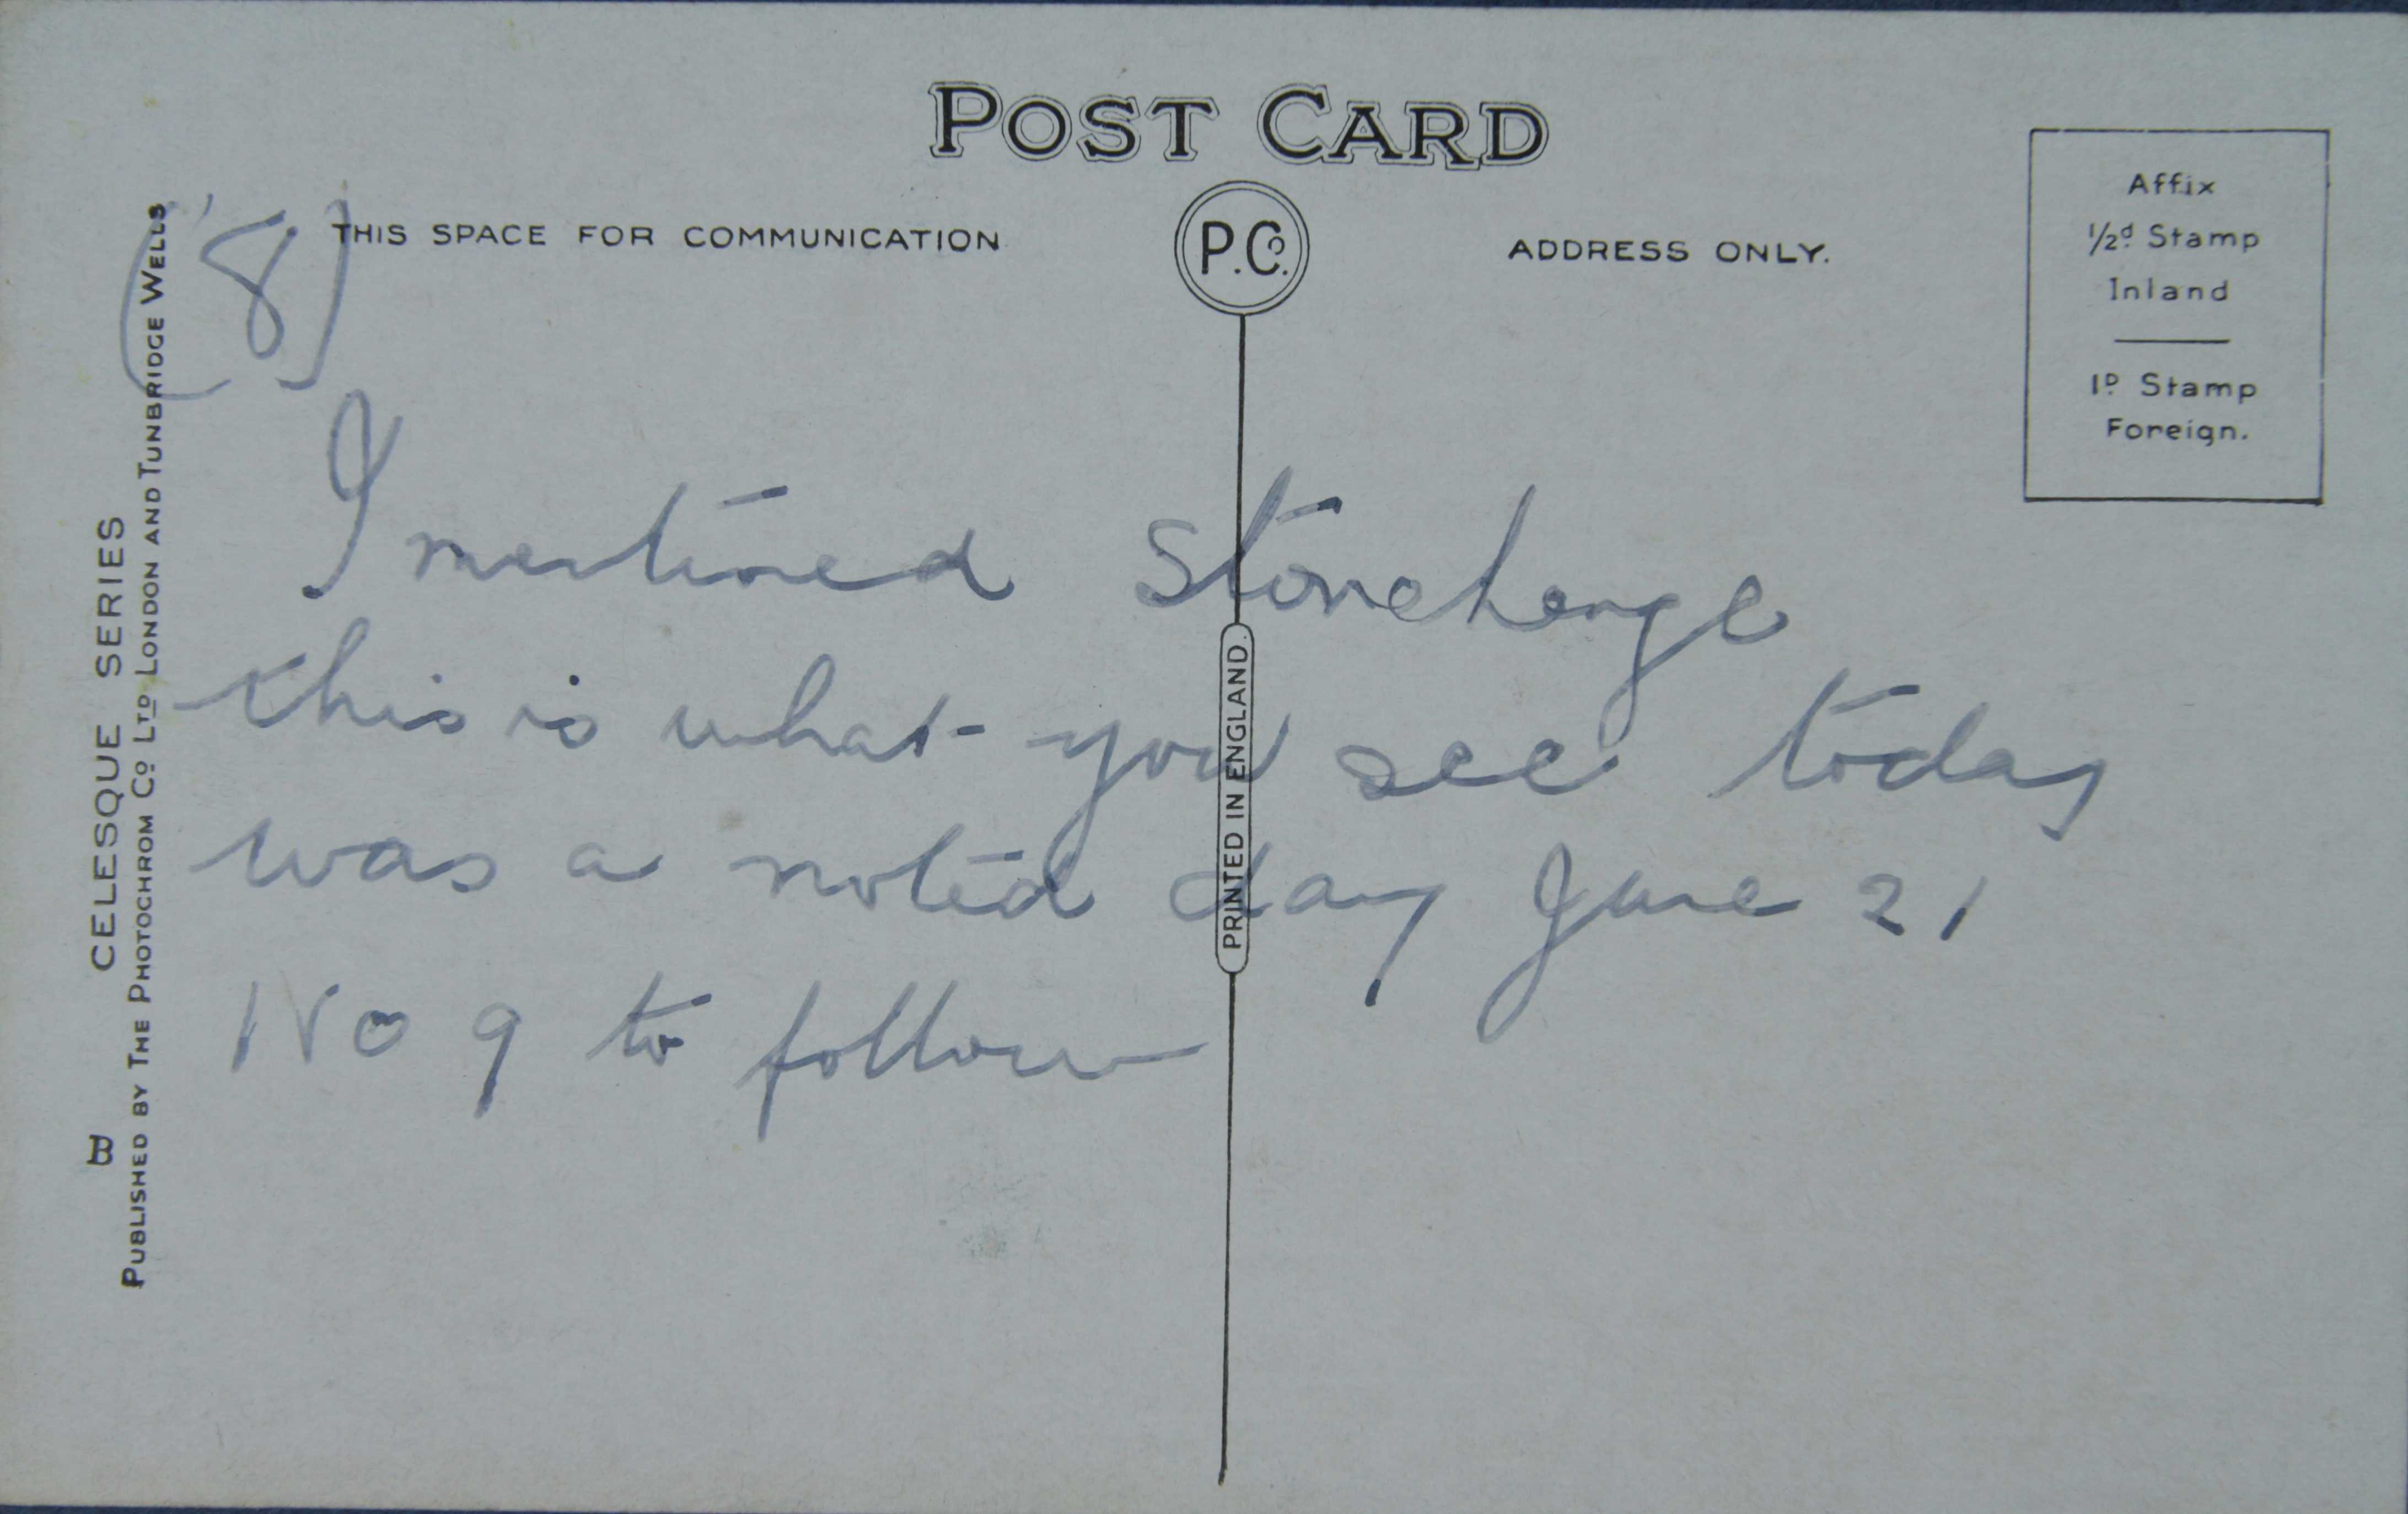 POST CARD
THIS SPACE FOR COMMUNICATION
P.Co.
ADDRESS ONLY.
Affix
1/2d Stamp
Inland
1D Stamp
Foreign.
(8)
I mentioned Stonehenge
this is what you see today
was a noted day June 21
No 9 to follow
PRINTED IN ENGLAND.
B CELESQUE SERIES
PUBLISHED BY THE PHOTOCHROM Co LTD LONDON AND TUNBRIDGE WELLS